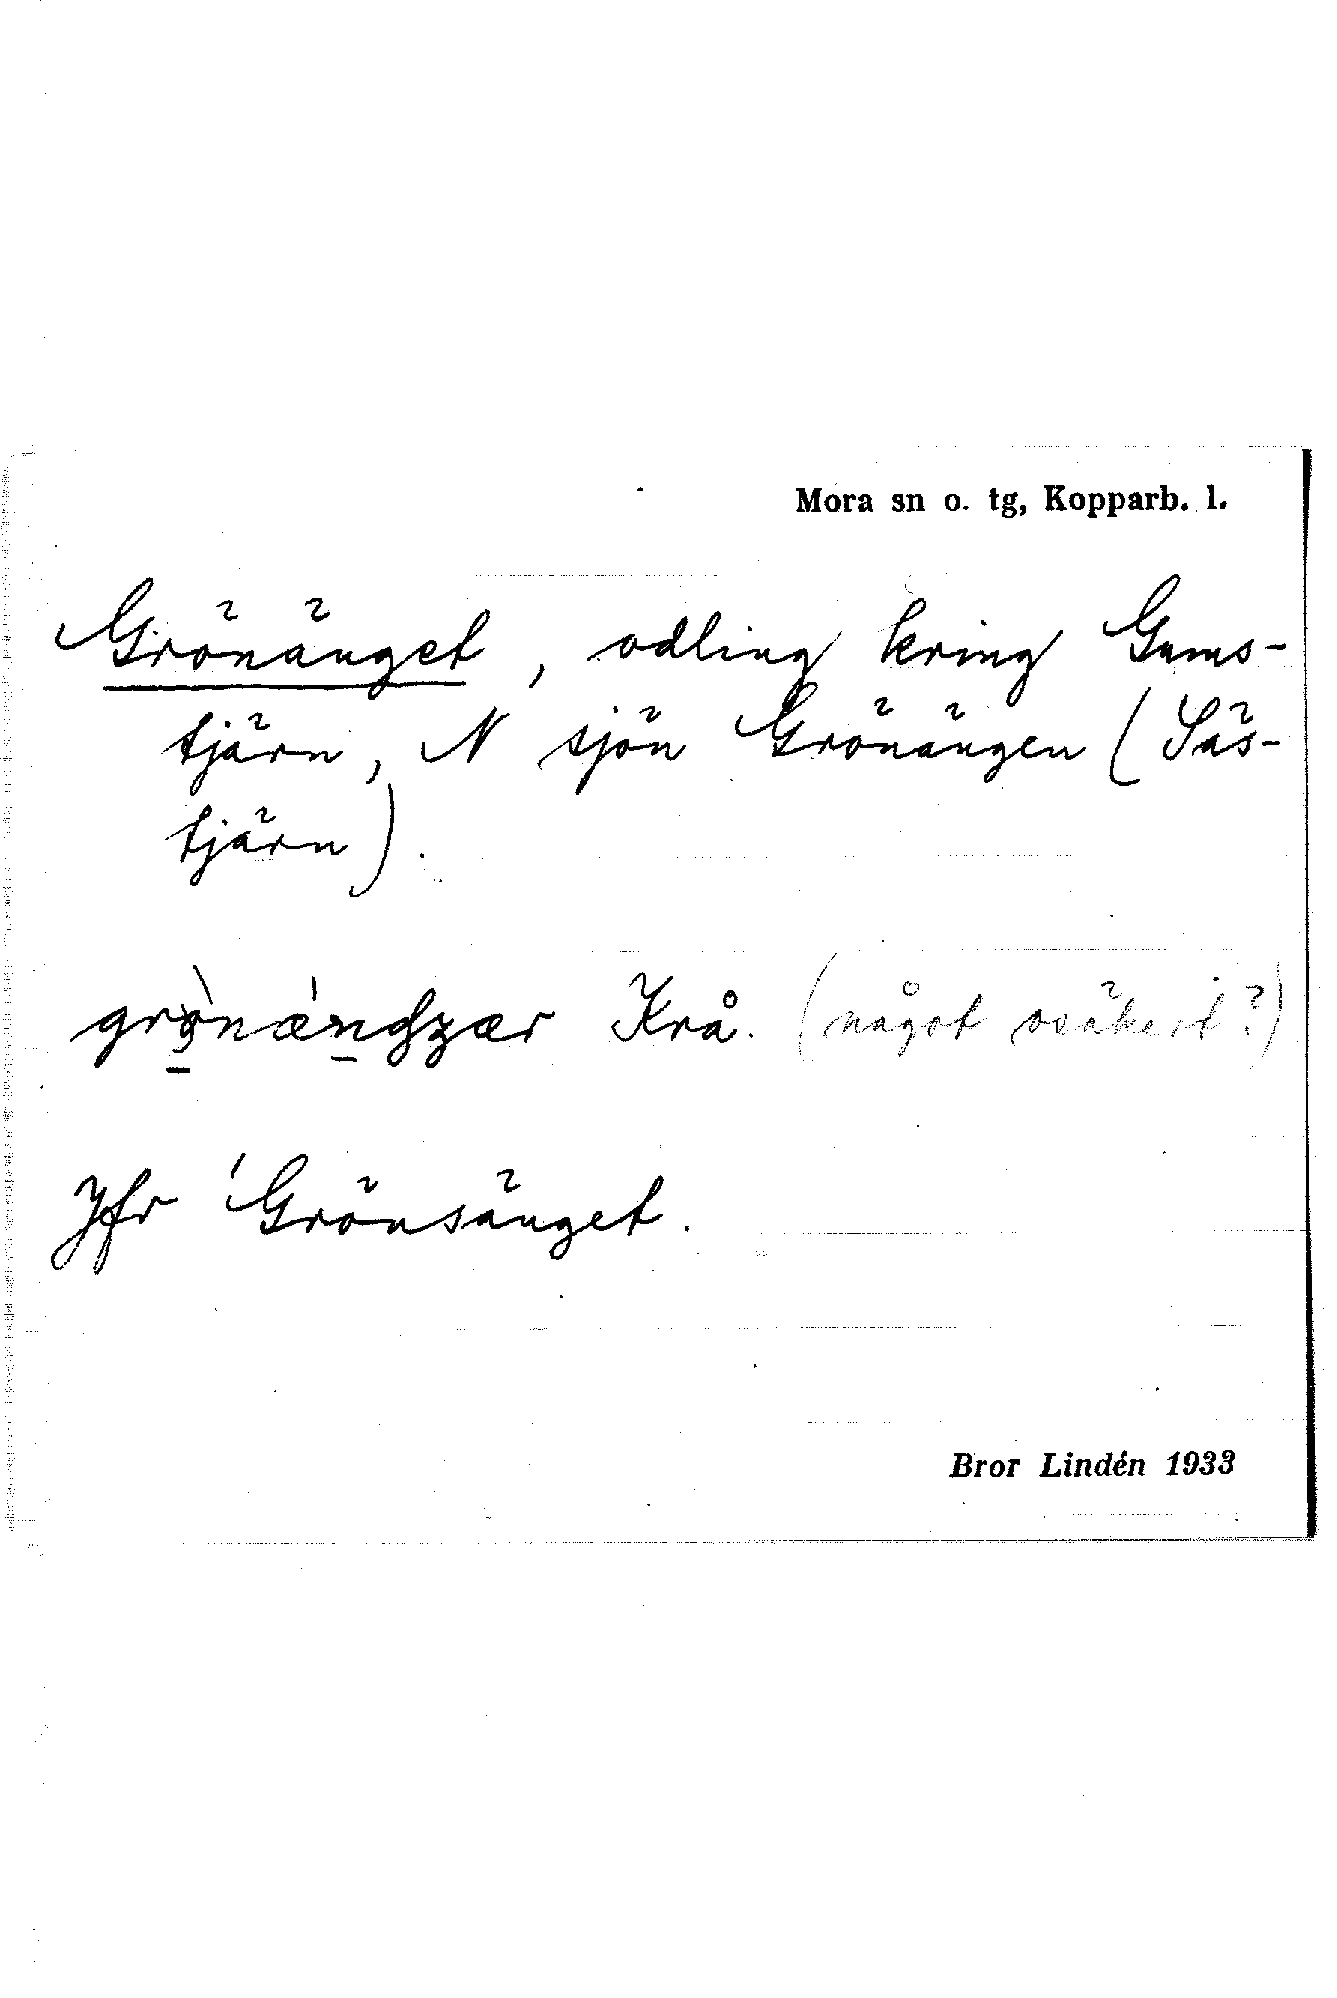 Mora sn o. tg, Kopparb. l.
Grönänget, odling kring Gums-
tjärn, N sjön Grönängen (Säs-
tjärn).
Krå. (något osäkert?)
Jfr 'Grönsänget.
Bror Lindén 1933